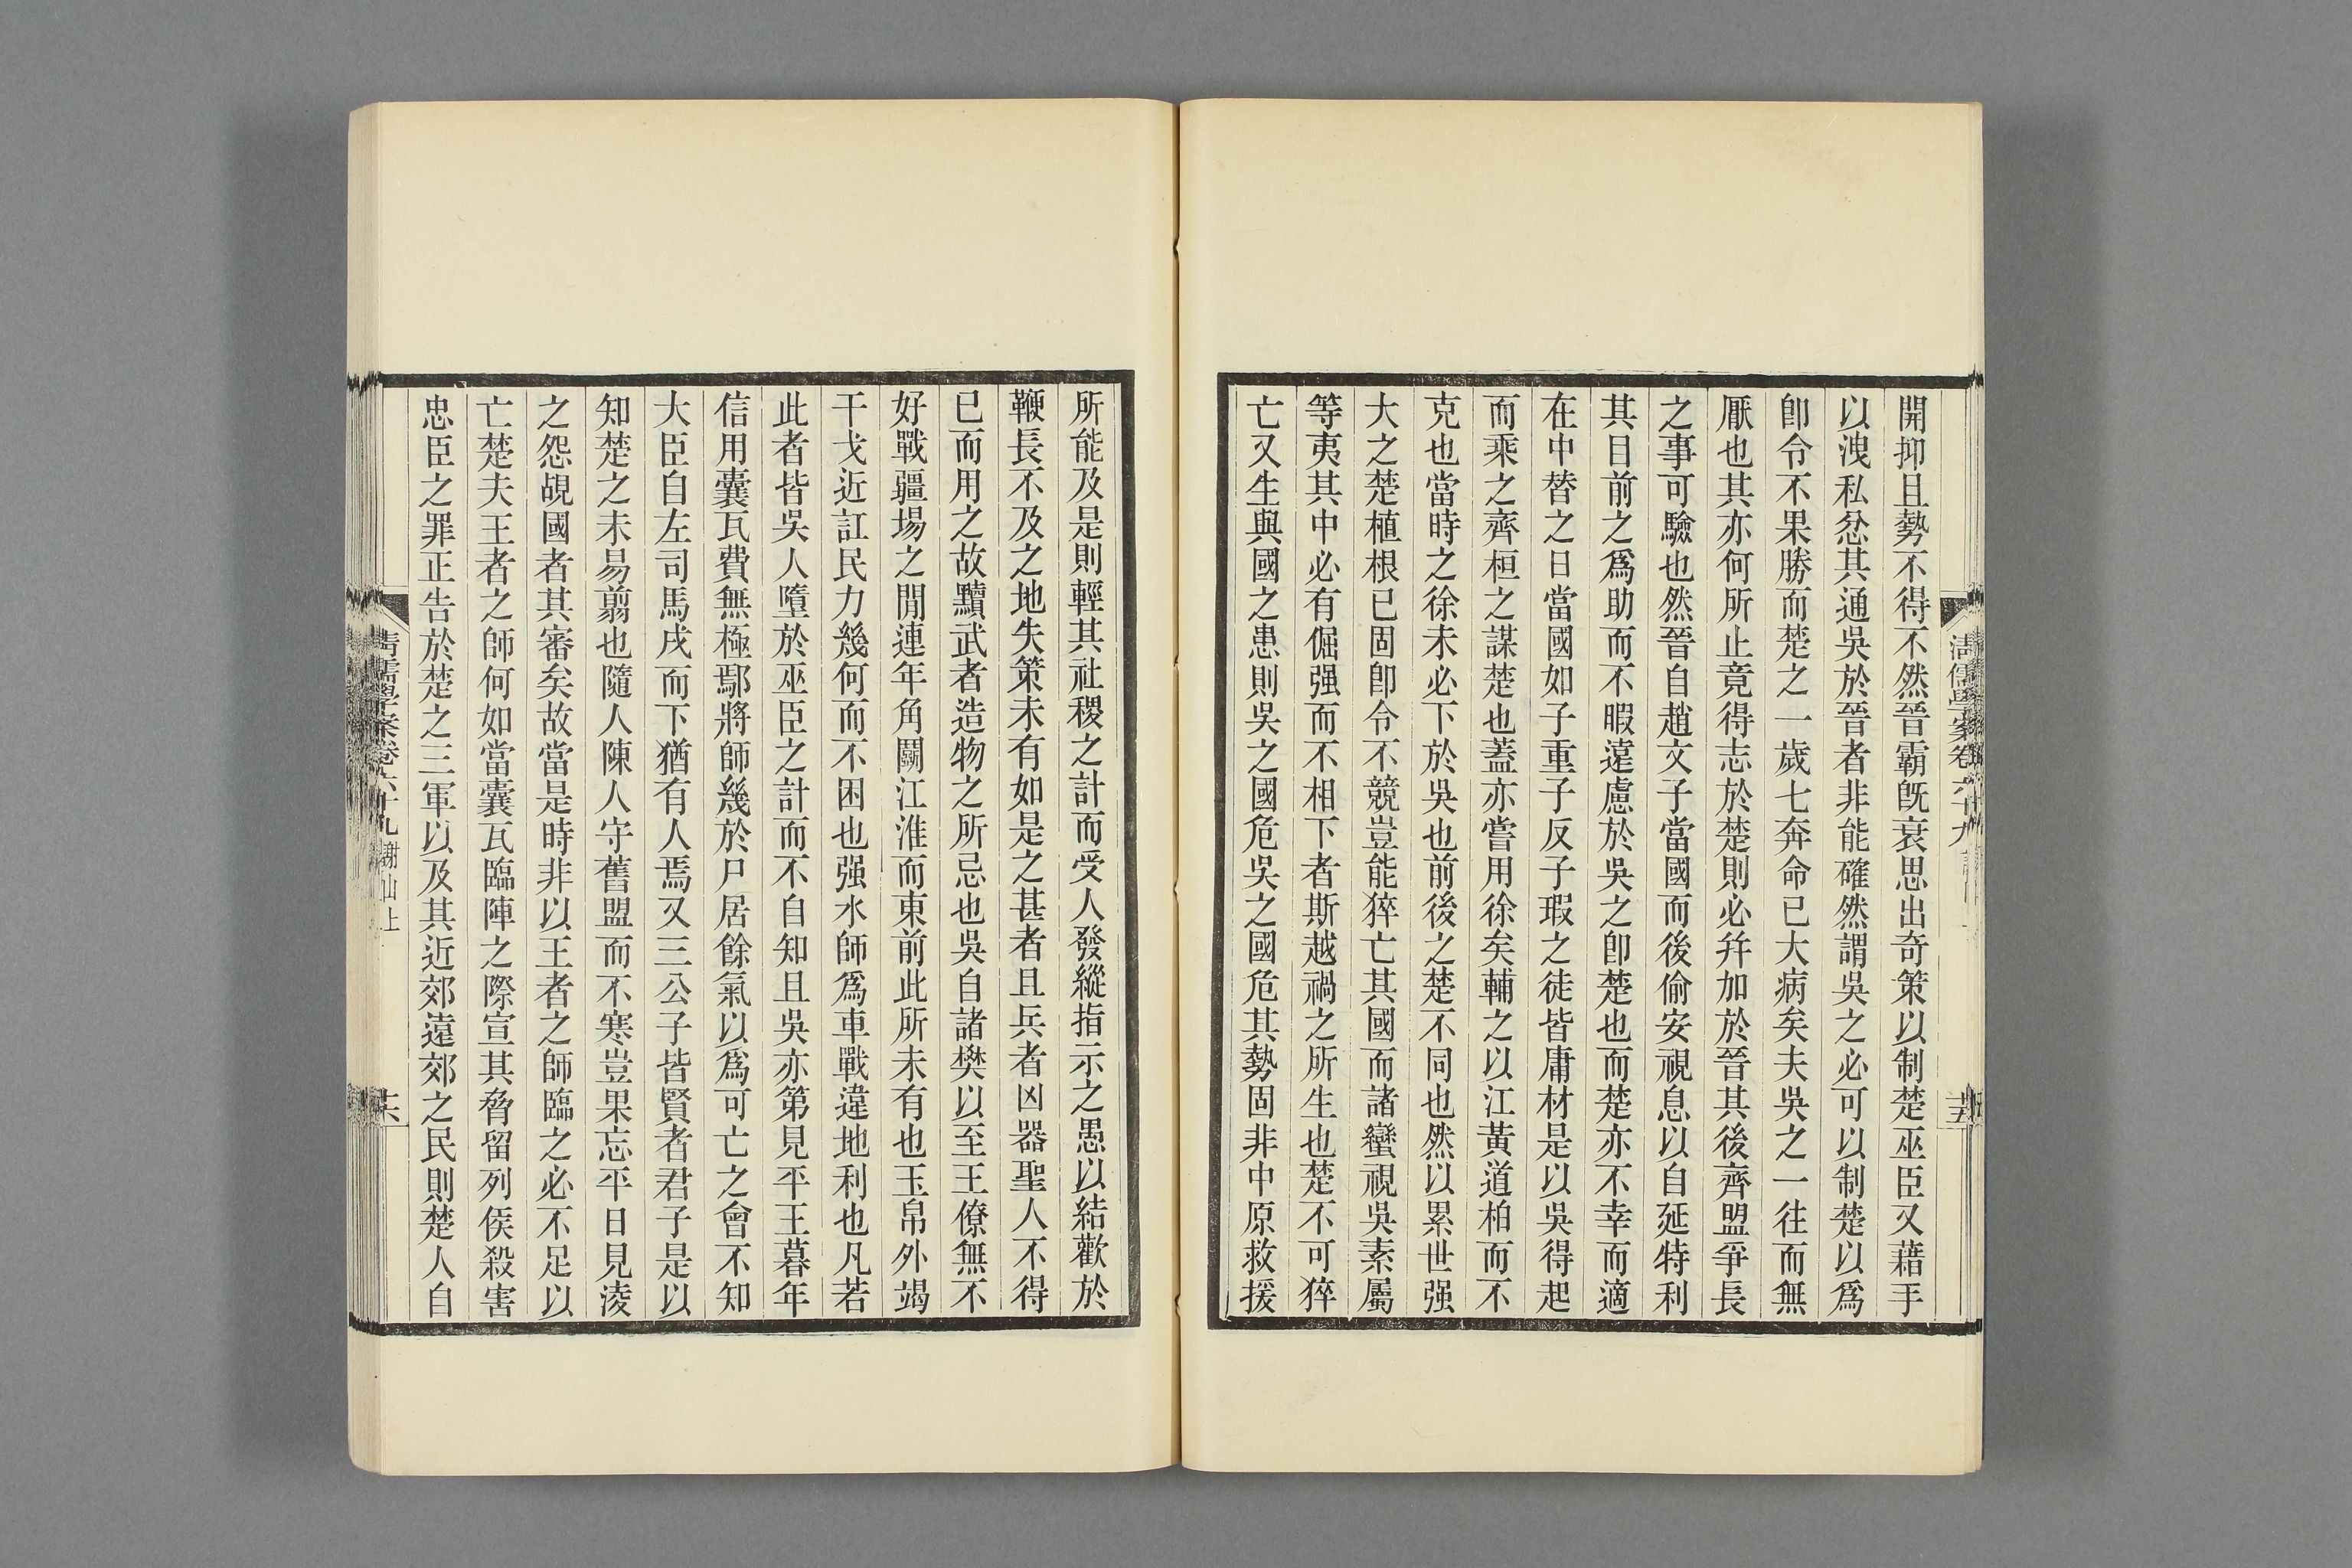 開抑且勢不得不然晉霸旣衰思出奇策以制楚巫臣又藉手
以洩私忿其通吳於晉者非能確然謂吳之必可以制楚以爲
卽令不果勝而楚之一歲七奔命已大病矣夫吳之一往而無
厭也其亦何所止竟得志於楚則必幷加於晉其後齊盟爭長
之事可驗也然晉自趙文子當國而後偷安視息以自延特利
其目前之爲助而不暇遠慮於吳之卽楚也而楚亦不幸而適
在中替之日當國如子重子反子瑕之徒皆庸材是以吳得起
而乘之齊桓之謀楚也蓋亦嘗用徐矣輔之以江黃道柏而不
克也當時之徐未必下於吳也前後之楚不同也然以累世强
大之楚植根已固卽令不競豈能猝亡其國而諸蠻視吳素屬
等夷其中必有倔强而不相下者斯越禍之所生也楚不可猝
亡又生與國之患則吳之國危吳之國危其勢固非中原救援
清儒學案卷六十九
十五
所能及是則輕其社稷之計而受人發縱指示之愚以結歡於
鞭長不及之地失策未有如是之甚者且兵者凶器聖人不得
已而用之故黷武者造物之所忌也吳自諸樊以至王僚無不
好戰疆場之閒連年角鬭江淮而東前此所未有也玉帛外竭
干戈近訌民力幾何而不困也强水師爲車戰違地利也凡若
此者皆吳人墮於巫臣之計而不自知且吳亦第見平王暮年
信用囊瓦費無極鄢將師幾於尸居餘氣以爲可亡之會不知
大臣自左司馬戌而下猶有人焉又三公子皆賢者君子是以
知楚之未易翦也隨人陳人守舊盟而不寒豈果忘平日見淩
之怨覘國者其審矣故當是時非以王者之師臨之必不足以
亡楚夫王者之師何如當囊瓦臨陣之際宣其脅留列侯殺害
忠臣之罪正告於楚之三軍以及其近郊遠郊之民則楚人自
清儒學案卷六十九 謝山上
十六